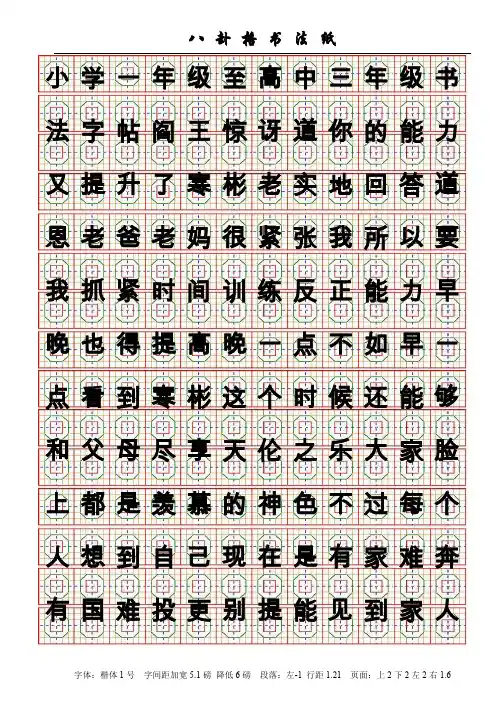 八卦楷书法纸
小学一年级至高中三年级书
法字帖阎王惊讶道你的能力
又提升了寒彬老实地回答道
恩老爸老妈很紧张我所以要
我抓紧时间训练反正能力早
晚也得提高晚一点不如早一
点看到寒彬这个时候还能够
和父母尽享天伦之乐大家脸
上都是羡慕的神色不过每个
人想到自己现在是有家难奔
有国难投更别提能见到家人
字体：楷体1号 字间距加宽5.1磅 降低6磅 段落：左-1 行距1.21 页面：上2下2左2右1.6